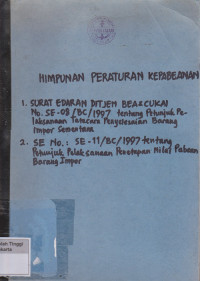 HIMPUNAN PERATURAN KEPABEANAN
1. SURAT EDARAN DITJEN BEA & CUKAI
No. SE-08/BC/1997 tentang Petunjuk Pe-
laksanaan Tatacara Penyelesaian Barang
Impor Sementara
2. SE No.: SE-11/BC/1997 tentang
Petunjuk Pelaksanaan Penetapan Nilai Pabean
Barang Impor
lah Tinggi